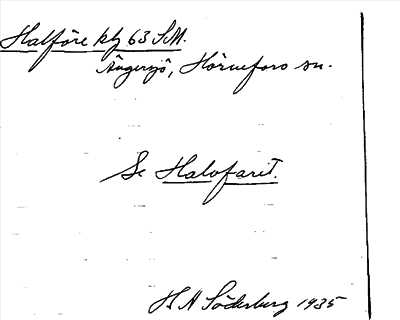 Halföre kbg 63 S.M.
Ängersjö, Hörnefors sn.
Se Halofaret.
H A Söderberg 1935